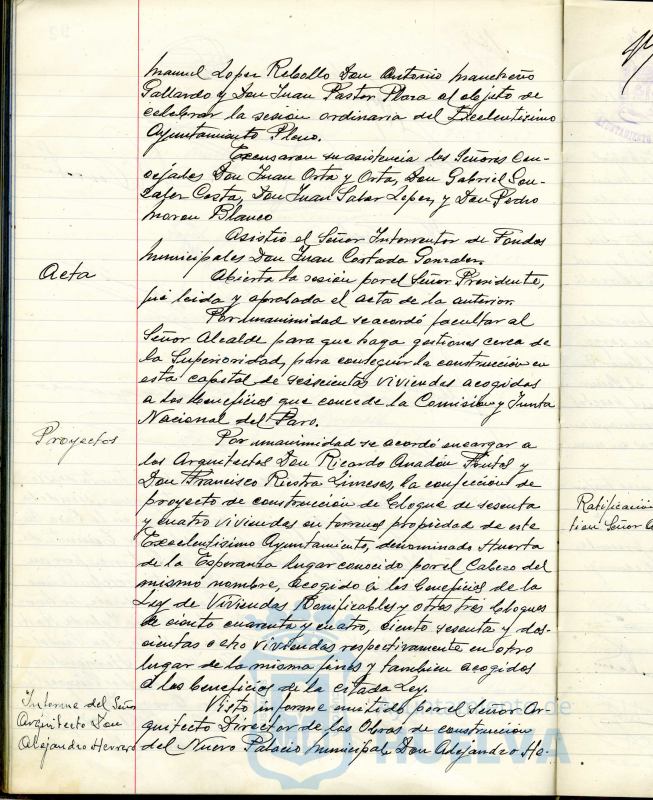 Manuel Lopez Rebollo Don Antonio Mancheño
Gallardo y Don Juan Pastor Plaza al objeto de
celebrar la sesion ordinaria del Excelentisimo
Ayuntamiento Pleno.
Excusaron su asistencia los Señores Con-
cejales Don Juan Orta y Orta, Don Gabriel Gon-
zalez Costa, Don Juan Salar Lopez, y Don Pedro
Moron Blanco
Asistio el Señor Interventor de Fondos
Municipales Don Juan Cortada Gonzalez.
Acta
Abierta la sesion por el Señor Presidente,
fué leida y aprobada el acta de la anterior.
Por unanimidad se acordó facultar al
Señor Alcalde para que haga gestiones cerca de
la Superioridad, para conseguir la construcción en
esta capital de seiscientas viviendas acogidas
a los beneficios que concede la Comision y Junta
Nacional del Paro.
Proyectos
Por unanimidad se acordó encargar a
los Arquitectos Don Ricardo Anadón Frutos y
Don Francisco Riestra Limeses, la confeccion de
proyecto de construccion de bloque de sesenta
y cuatro viviendas en terrenos propiedad de este
Excelentisimo Ayuntamiento, denominado Huerta
de la Esperanza lugar conocido por el Cabezo del
mismo nombre, acogido a los beneficios de la
Ley de Viviendas Bonificables y otros tres bloques
de ciento cuarenta y cuatro, ciento sesenta y dos-
cientas ocho viviendas respectivamente en otro
lugar de la misma finca y tambien acogidos
a los beneficios de la citada Ley.
Informe del Señor
Arquitecto Don
Alejandro Herrero
Visto informe emitido por el Señor Ar-
quitecto Director de las Obras de construccion
del Nuevo Palacio Municipal Don Alejandro He-
Ratificación
Señor
Ayuntamiento de
HUELVA